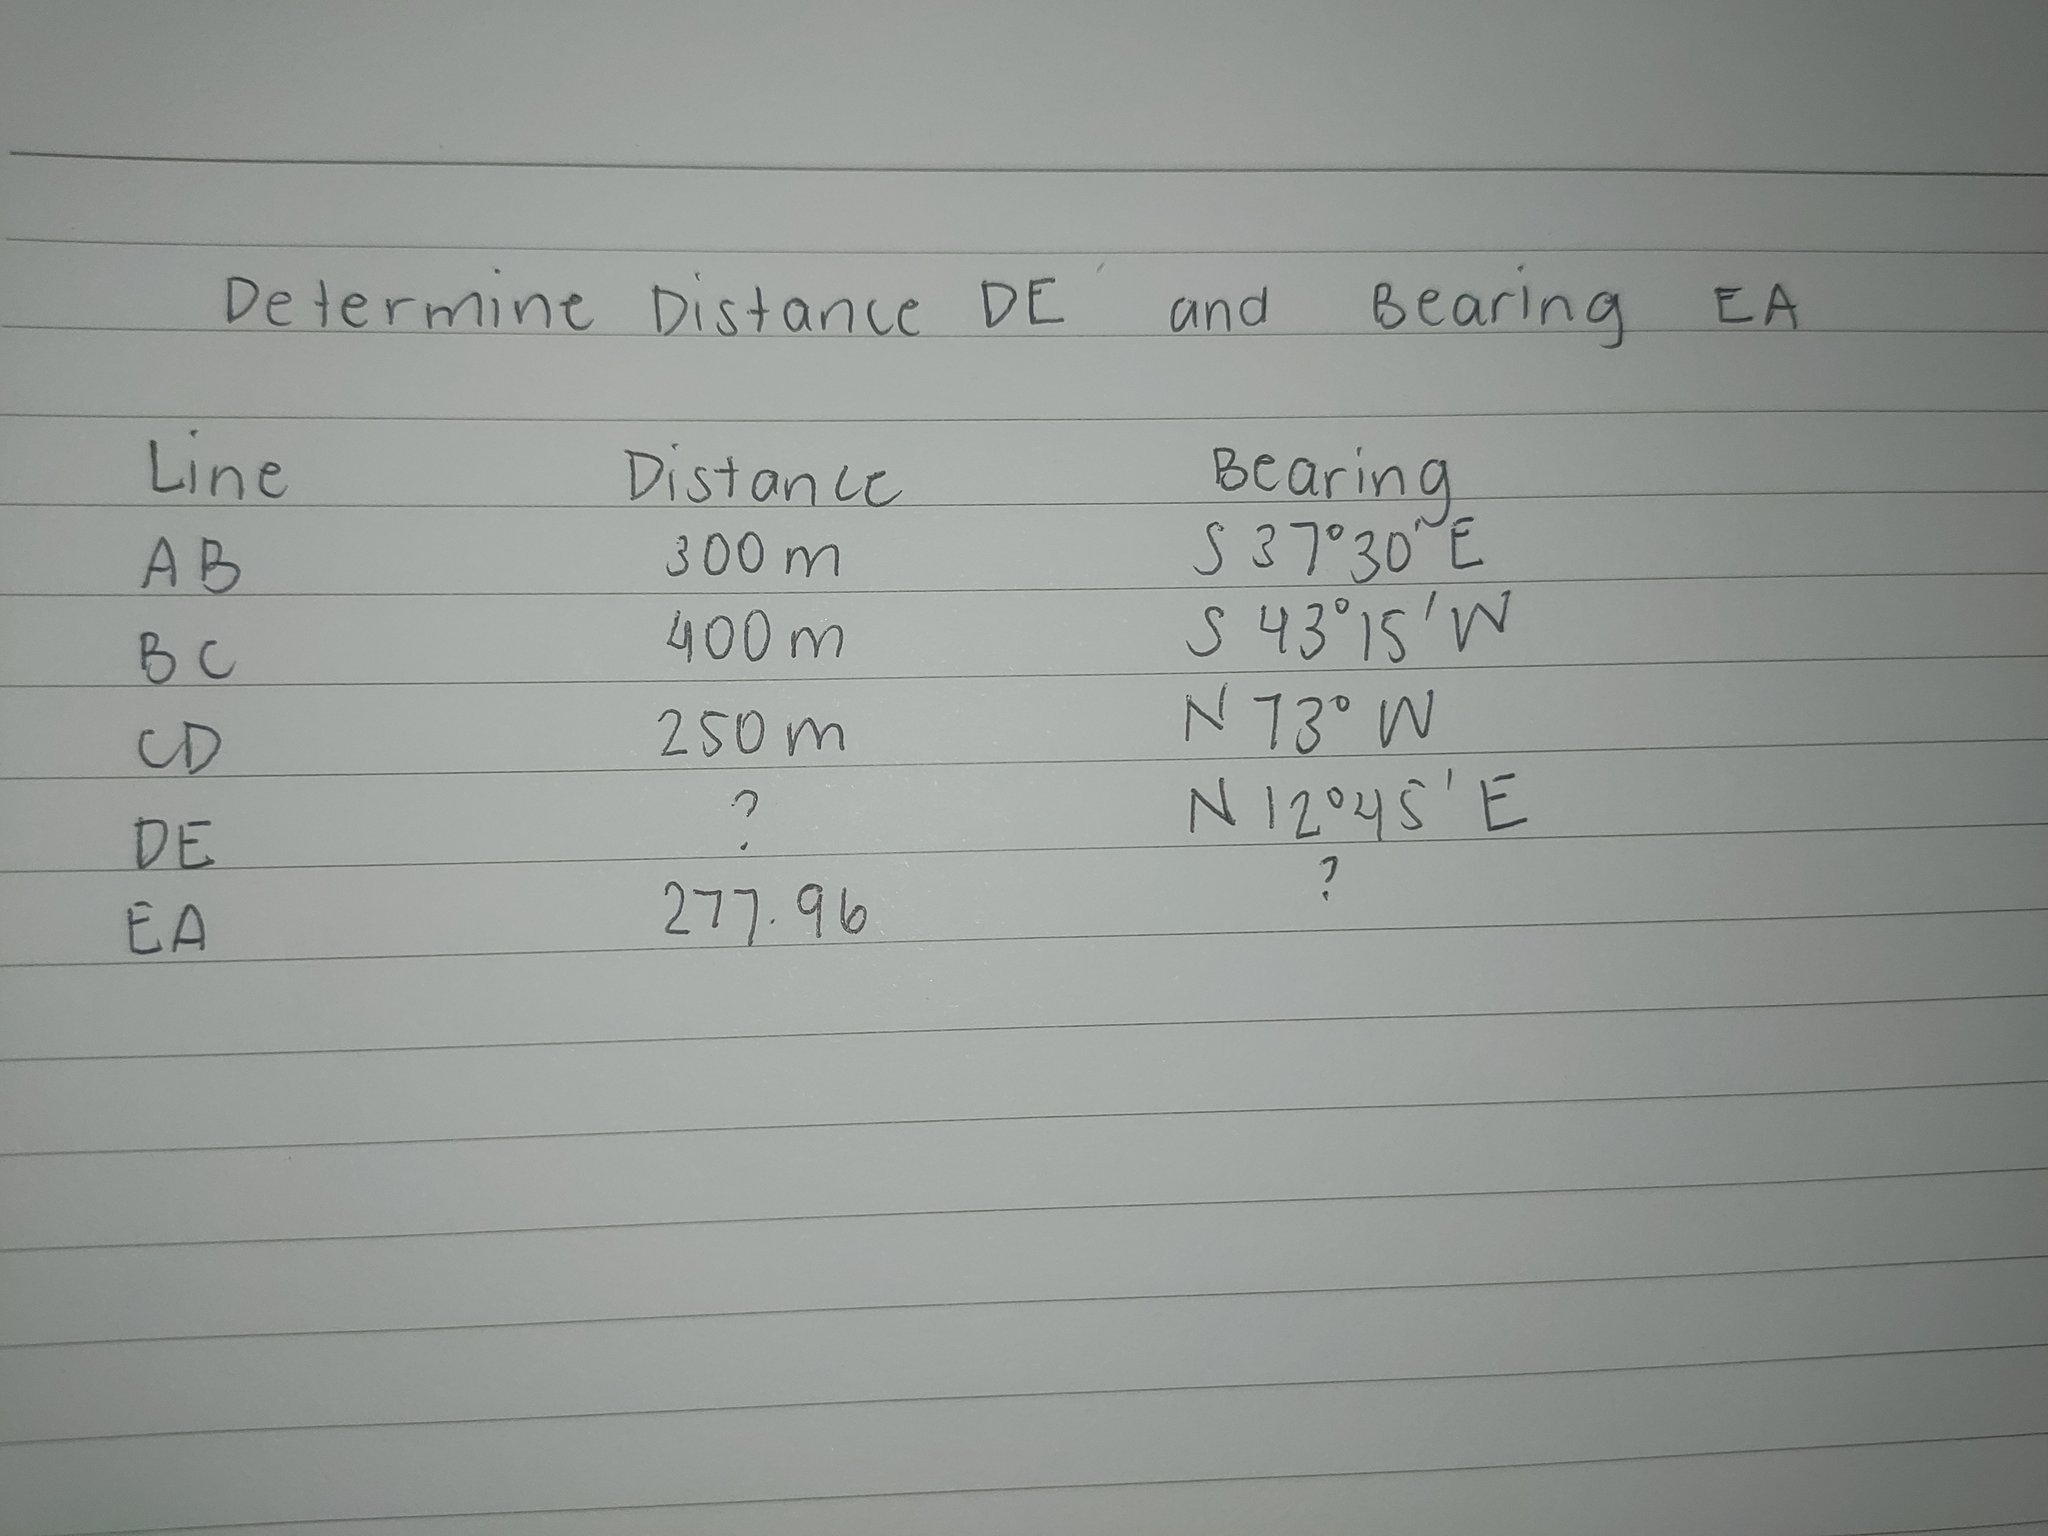 Determine Distance DE and Bearing EA
Line Distance Bearing
AB 300 m S 37°30' E
BC 400 m S 43°15' W
CD 250 m N 73° W
DE ? N 12°45' E
EA 277.96 ?